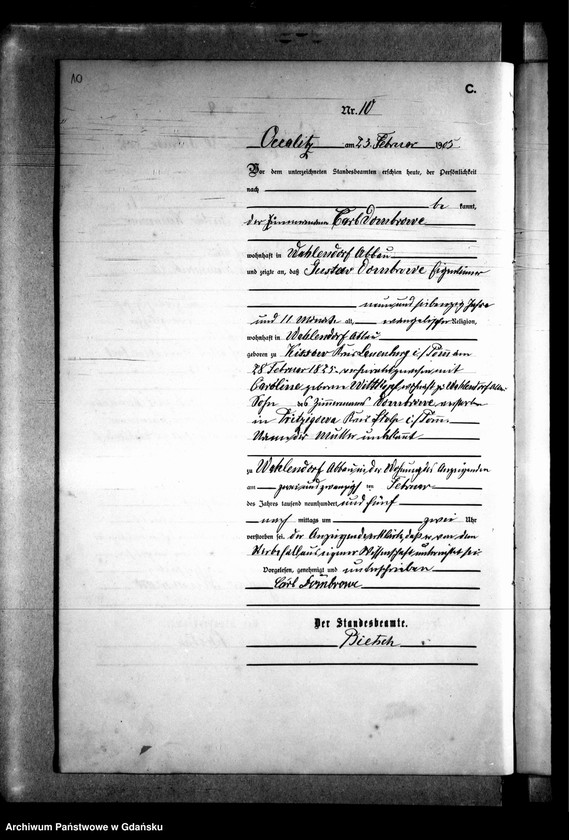 10
C.
Nr. 10
Occalitz am 23. Februar 1905
Vor dem unterzeichneten Standesbeamten erschien heute, der Persönlichkeit
nach
be kannt,
der Zimmermann Carl Dombrowe
wohnhaft in Wahlendorf Abbau
und zeigte an, daß Gustav Dombrowe Eigentümer
neunundsiebenzig Jahre
und 11 Monate alt, evangelischer Religion,
wohnhaft in Wahlendorf Abbau
geboren zu Kreis Lauenburg i/Pom am
28 Februar 1825 mit
Caroline geborene wohnhaft zu Wahlendorf Abbau
Sohn des Zimmermanns Dombrowe verstorben
in Kreis Stolp i/Pom.
Name der Mutter unbekannt
zu Wahlendorf Abbau, in der Wohnung des Anzeigenden
am zweiundzwanzigsten Februar
des Jahres tausend neunhundert und fünf
nach mittags um zwei Uhr
verstorben sei. der Anzeigende erklärte, daß er von dem
Sterbefall aus eigener Wissenschaft unterrichtet sei.
Vorgelesen, genehmigt und unterschrieben
Carl Dombrowe
Der Standesbeamte.
Dietsch
Archiwum Państwowe w Gdańsku